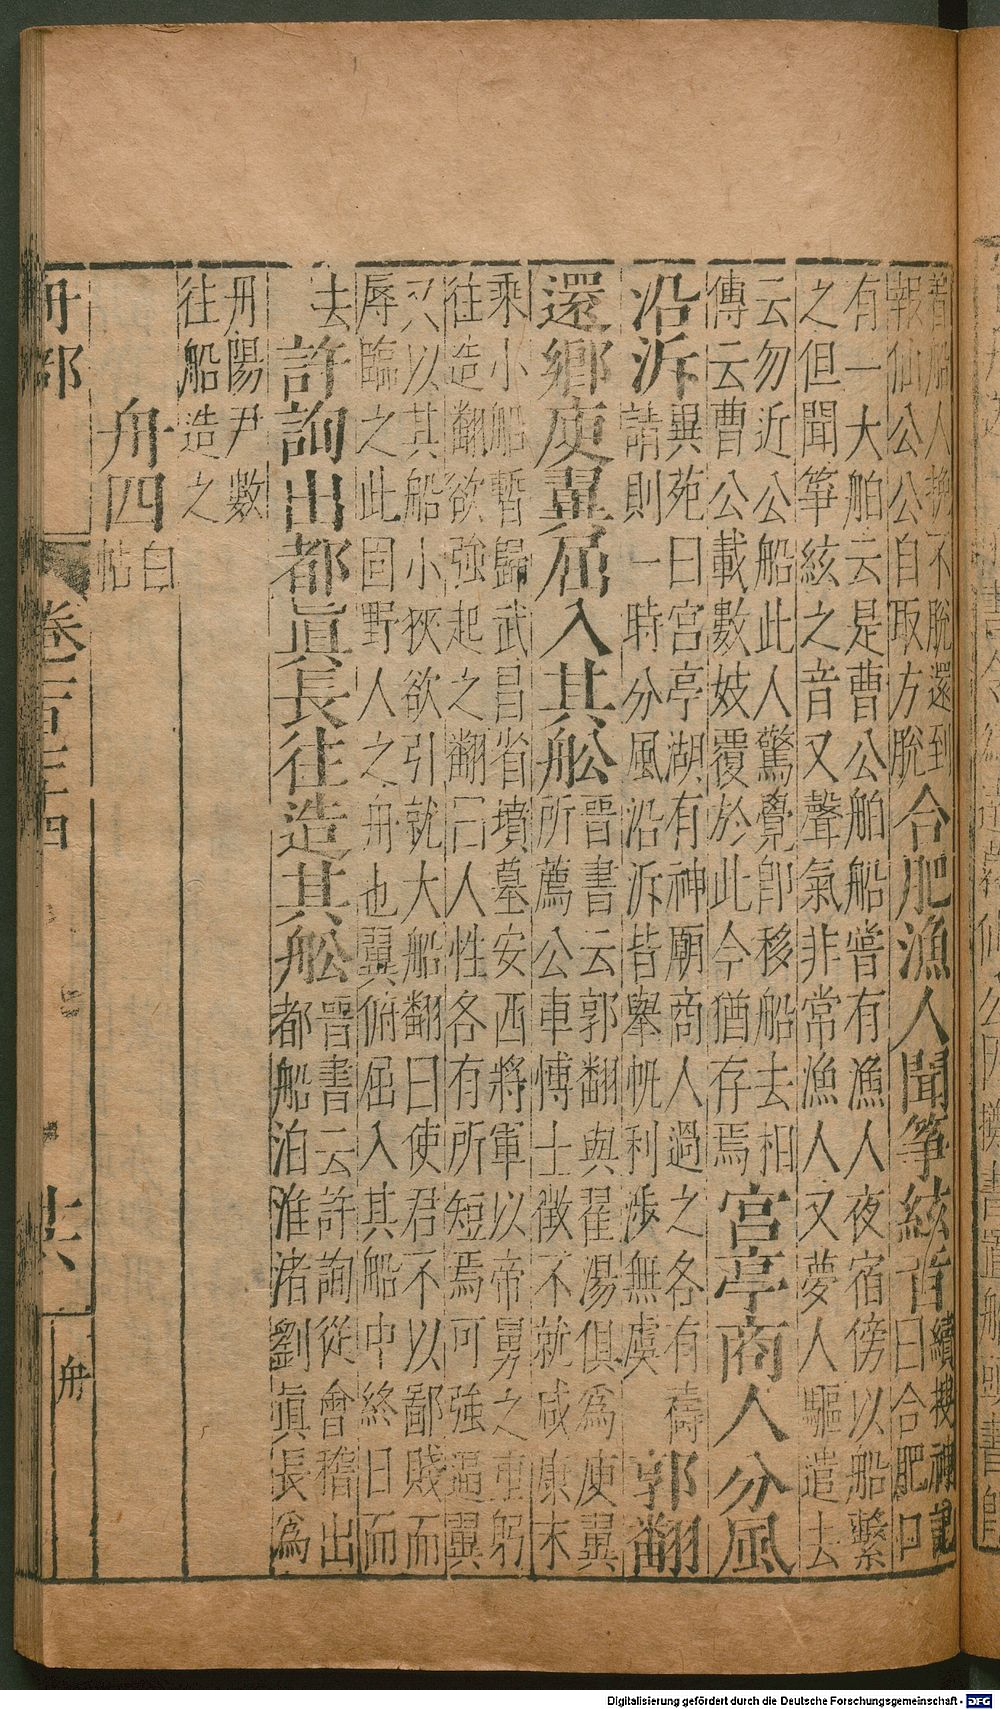 船人挽不脫還到
報仙公公自取方脫
合肥漁人聞筝絃音
續搜神記
曰合肥口
有一大舶云是曹公舶船嘗有漁人夜宿傍以船繫
之但聞筝絃之音又聲氣非常漁人又夢人驅遣去
云勿近公船此人驚覺卽移船去相
傳云曹公載數妓覆於此今猶存焉
宮亭商人分風
沿泝
異苑曰宮亭湖有神廟商人過之各有禱
請則一時分風沿泝皆舉帆利涉無虞
郭翻
還鄉庾翼屈入其舩
晉書云郭翻與翟湯俱為庾翼
所薦公車博士徵不就咸康末
乘小船暫歸武昌省墳墓安西將軍以帝舅之重躬
往造翻欲強起之翻曰人性各有所短焉可強逼翼
又以其船小狹欲引就大船翻曰使君不以鄙賤而
辱臨之此固野人之舟也翼俯屈入其船中終日而
去
許詢出都眞長往造其舩
晉書云許詢從會稽出
都船泊淮渚劉眞長為
丹陽尹數
往船造之
舟四
白帖
舟部
舟
Digitalisierung gefördert durch die Deutsche Forschungsgemeinschaft - DFG